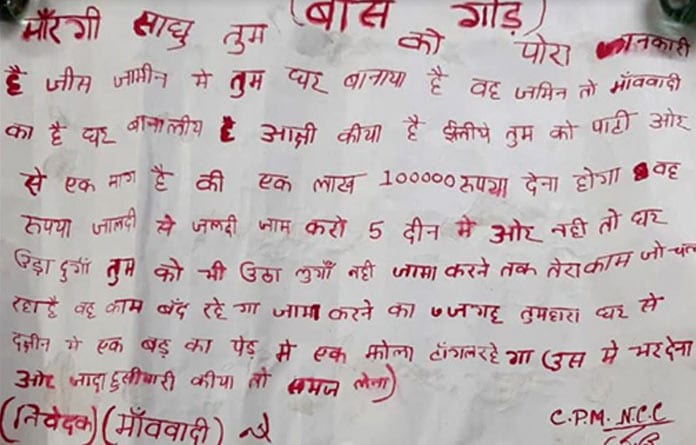 (बास गोड़)
माँरगी साधु तुम को पोरा जानकारी
है जीस जामीन मे तुम घर बानाया है वह जमिन तो माँववादी
का है घर बानालीय है आछी कीया है ईसलीये तुम को पाटी ओर
से एक माग है की एक लाख 100000 रूपया देना होगा वह
रूपया जालदी से जलदी जाम करो 5 दीन मे ओर नही तो घर
उड़ा दुगाँ तुम को भी उठा लुगाँ नही जामा करने तक तेरा काम जो चल
रहा है वह काम बंद रहे गा जामा करने का जगह तुमहारा घर से
दछीन मे एक बड़ का पेड़ मे एक झोला टाँगल रहे गा (उस मे भर देना
ओर जादा हुसीयारी कीया तो समज लेना)
(निवेदक) (माँववादी)
C.P.M. N.C.C